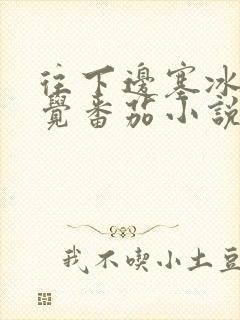 往下邊塞冰
覺番茄小說
我不喫小土豆